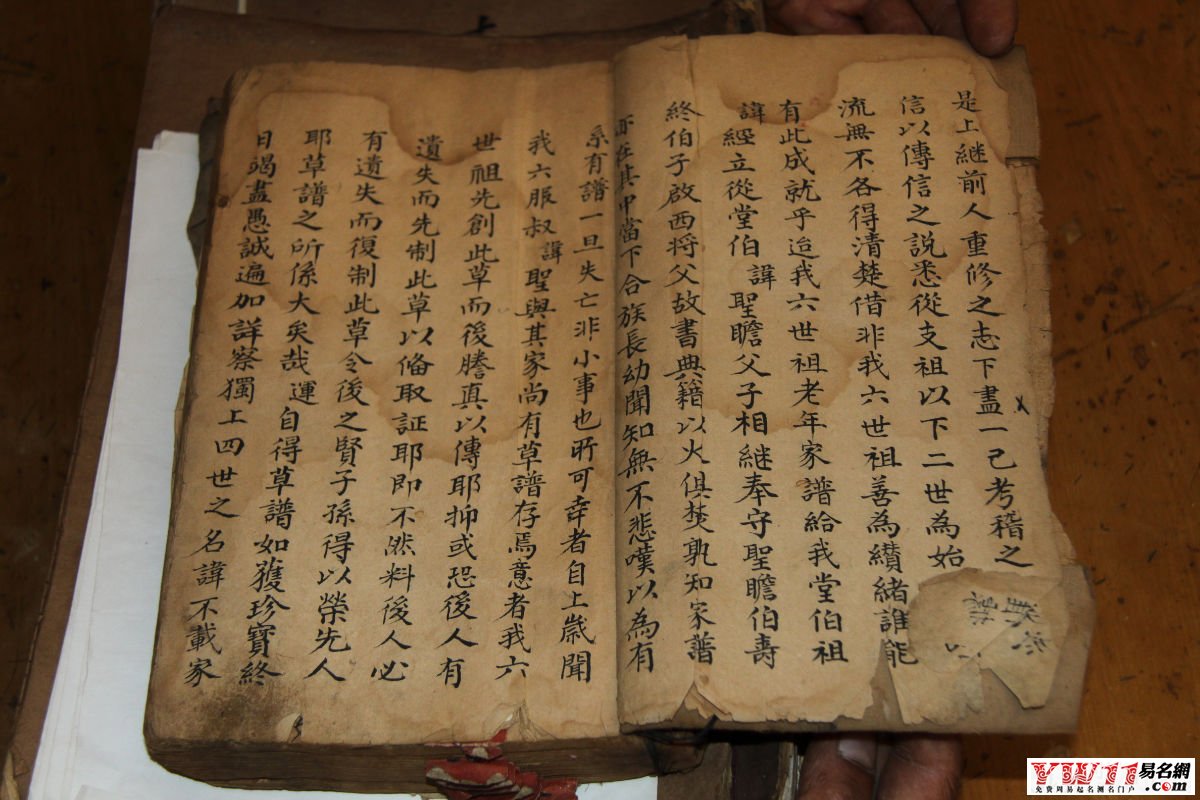 是上継前人重修之志下盡一己考稽之
信以傳信之説悉從支祖以下二世為始
流無不各得清楚借非我六世祖善為纘緒誰能
有此成就乎迨我六世祖老年家譜給我堂伯祖
諱經立從堂伯諱聖瞻父子相継奉守聖瞻伯壽
終伯子啟西将父故書典籍以火俱焚孰知家譜
亦在其中當下合族長幼聞知無不悲嘆以為有
系有譜一旦失亡非小事也所可幸者自上嵗聞
我六服叔諱聖與其家尚有草譜存焉意者我六
世祖先創此草而後謄真以傳耶抑或恐後人有
遺失而先制此草以俻取証耶即不然料後人必
有遺失而復制此草令後之賢子孫得以榮先人
耶草譜之所係大矣哉運自得草譜如獲珍寶終
日竭盡愚誠遍加詳察獨上四世之名諱不載家
YW11易名網.com
免費周易起名測名门户